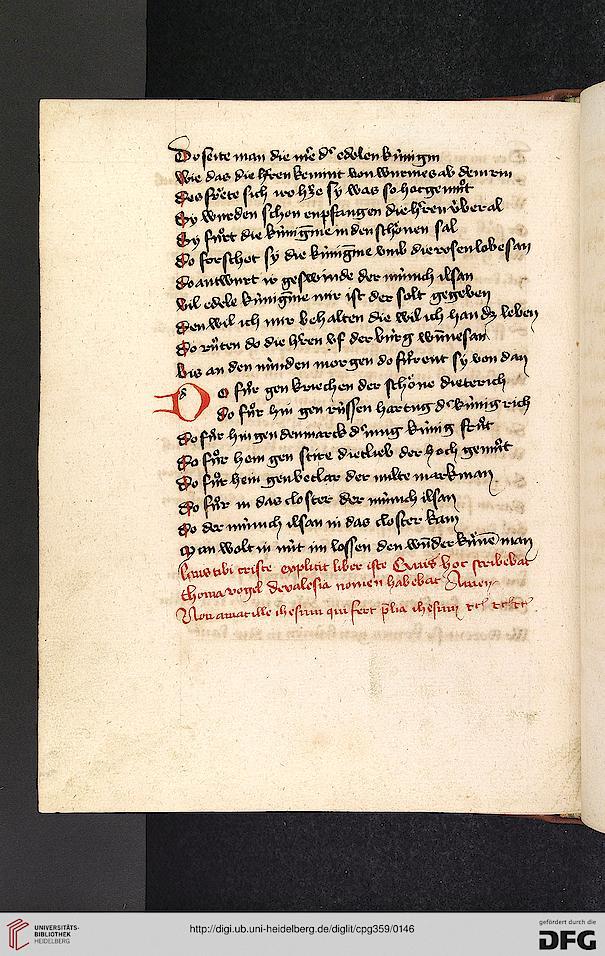 Do seite man die mere der edelen künigin
wie das die herren kemint von wurmes ab dem rin
des fröete sich ir hze sy was so hochgemüt
Sy wurden schon enpfangen die herren über al
Sy fürt die künigine in den schönen sal
Do forschet sy die künigine vmb die rosen lobesan
Do antwurt ir geswinde der münich ilsan
vil edele künigine mir ist der solt gegeben
den wil ich mir behalten die wil ich han dz leben
Do ritten do die herren vf der burg wunnesan
bis an den nünden morgen do fürent sy von dan
Do für gen kriechen der schöne dieterich
Do für hin gen rüssen hartnug der künig rich
Do für hin gen denmarck der iung künig frůt
Do für hein gen stire dietlieb der hoch gemüt
Do für hein gen beclar der milte markman
Do für in das closter der münich ilsan
Do der münich ilsan in das closter kam
Man wolt in nüt in lossen den wunder künen man
Laus tibi criste explicit liber iste Quis hoc scribebat
thoma vogel de valesia nomen habebat Amen
Non amat ille ihesum qui fert prelia ihesum etc etc etc
UNIVERSITÄTS-
BIBLIOTHEK
HEIDELBERG
http://digi.ub.uni-heidelberg.de/diglit/cpg359/0146
gefördert durch die
DFG